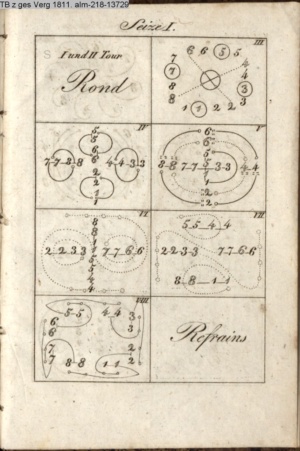 TB z ges Verg 1811. alm-218-13729
Seize I.
I und II Tour
Rond
III
6 6 5 5
7 4
7 4
8 3
8 3
1 1 2 2
IV
5
5
6
6
7 7 8 8 4 4 3 3
2
2
1
1
V
6
6
5
8 8 7 7 5 3 3 4 4
1
1
2
2
VI
8
8
1
2 2 3 3 1 7 7 6 6
5
5
4
4
VII
5 5 4 4
2 2 3 3 7 7 6 6
8 8 1 1
VIII
5 5 4 4
6 3
6 3
7 2
7 8 8 1 1 2
Refrains